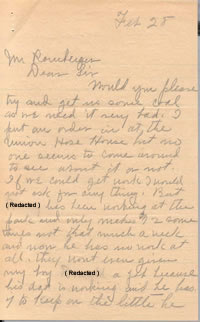 Feb 28
Mr
Dear Sir
Would you please
try and get us some coal
as we need it very bad. I
put our order in at the
Union Hose House but no
one seems to come around
to see about it or not.
If we could get work I would
not ask for any thing. But
(Redacted) has been working at the
park and only makes $12 some
times not that much a week
and now he has no work at
all. They wont even give
my boy (Redacted) a job because
his dad is working and he has
to keep on the little he